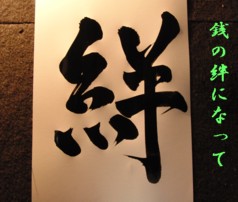 絆
銭の絆になって